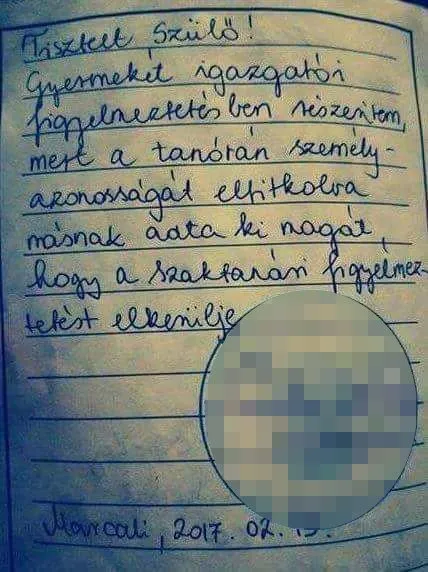 Tisztelt Szülő!
Gyermekét igazgatói
figyelmeztetésben részesítem,
mert a tanórán személy-
azonosságát eltitkolva
másnak adta ki magát,
hogy a szaktanári figyelmez-
tetést elkerülje
Marcali, 2017. 02. 13.